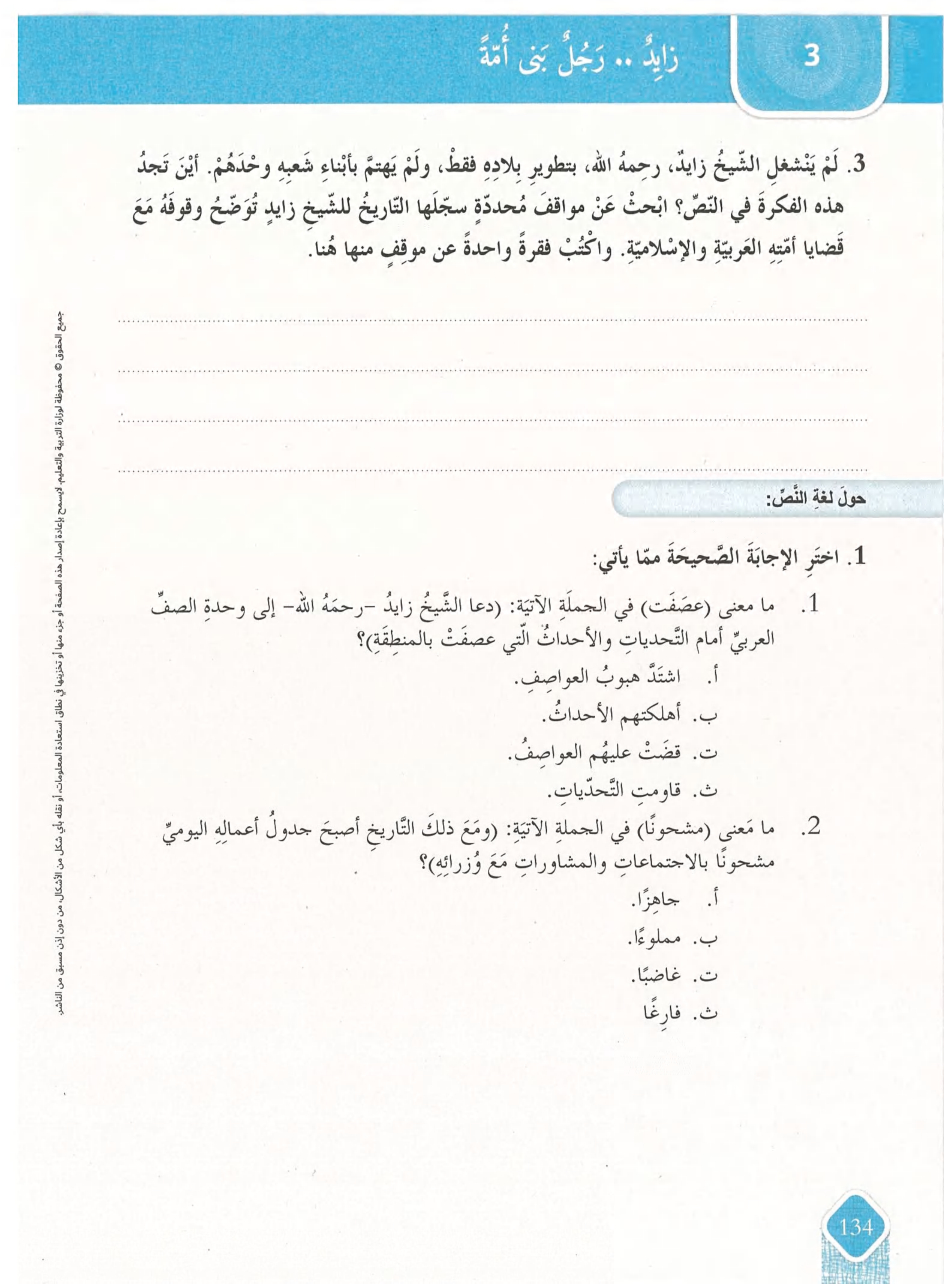 3
زايِدٌ .. رَجُلٌ بَنى أُمّةً
3. لَمْ يَنْشغلِ الشّيخُ زايدٌ، رحِمهُ الله، بتطويرِ بِلادِهِ فقطْ، ولَمْ يَهتمَّ بأبْناءِ شَعبِهِ وحْدَهُمْ. أيْنَ تَجدُ
هذه الفكرةَ في النّصِّ؟ ابْحثْ عَنْ مواقفَ مُحددّةٍ سجّلَها التّاريخُ للشّيخِ زايدٍ تُوَضّحُ وقوفَهُ مَعَ
قَضايا أمّتِهِ العَربيّةِ والإسْلاميّةِ. واكْتُبْ فقرةً واحدةً عن موقِفٍ منها هُنا.
حولَ لغةِ النَّصِّ:
1. اختَرِ الإجابَةَ الصَّحيحَةَ ممّا يأتي:
1. ما معنى (عصَفَت) في الجملَةِ الآتيَة: (دعا الشَّيخُ زايدُ -رحمَهُ الله- إلى وحدةِ الصفِّ
العربيِّ أمام التَّحدياتِ والأحداثُ الّتي عصفَتْ بالمنطِقَةِ)؟
أ. اشتَدَّ هبوبُ العواصِفِ.
ب. أهلكتهم الأحداثُ.
ت. قضَتْ عليهُم العواصِفُ.
ث. قاومتِ التَّحدّياتِ.
2. ما مَعنى (مشحونًا) في الجملةِ الآتيَة: (ومَعَ ذلكَ التَّاريخِ أصبحَ جدولُ أعمالِهِ اليوميِّ
مشحونًا بالاجتماعاتِ والمشاوراتِ مَعَ وُزرائِهِ)؟
أ. جاهِزًا.
ب. مملوءًا.
ت. غاضبًا.
ث. فارِغًا
جميع الحقوق © محفوظة لوزارة التربية والتعليم. لايسمح بإعادة إصدار هذه الصفحة أو جزء منها أو تخزينها في نطاق استعادة المعلومات، أو نقله بأي شكل من الأشكال، من دون إذن مسبق من الناشر.
134